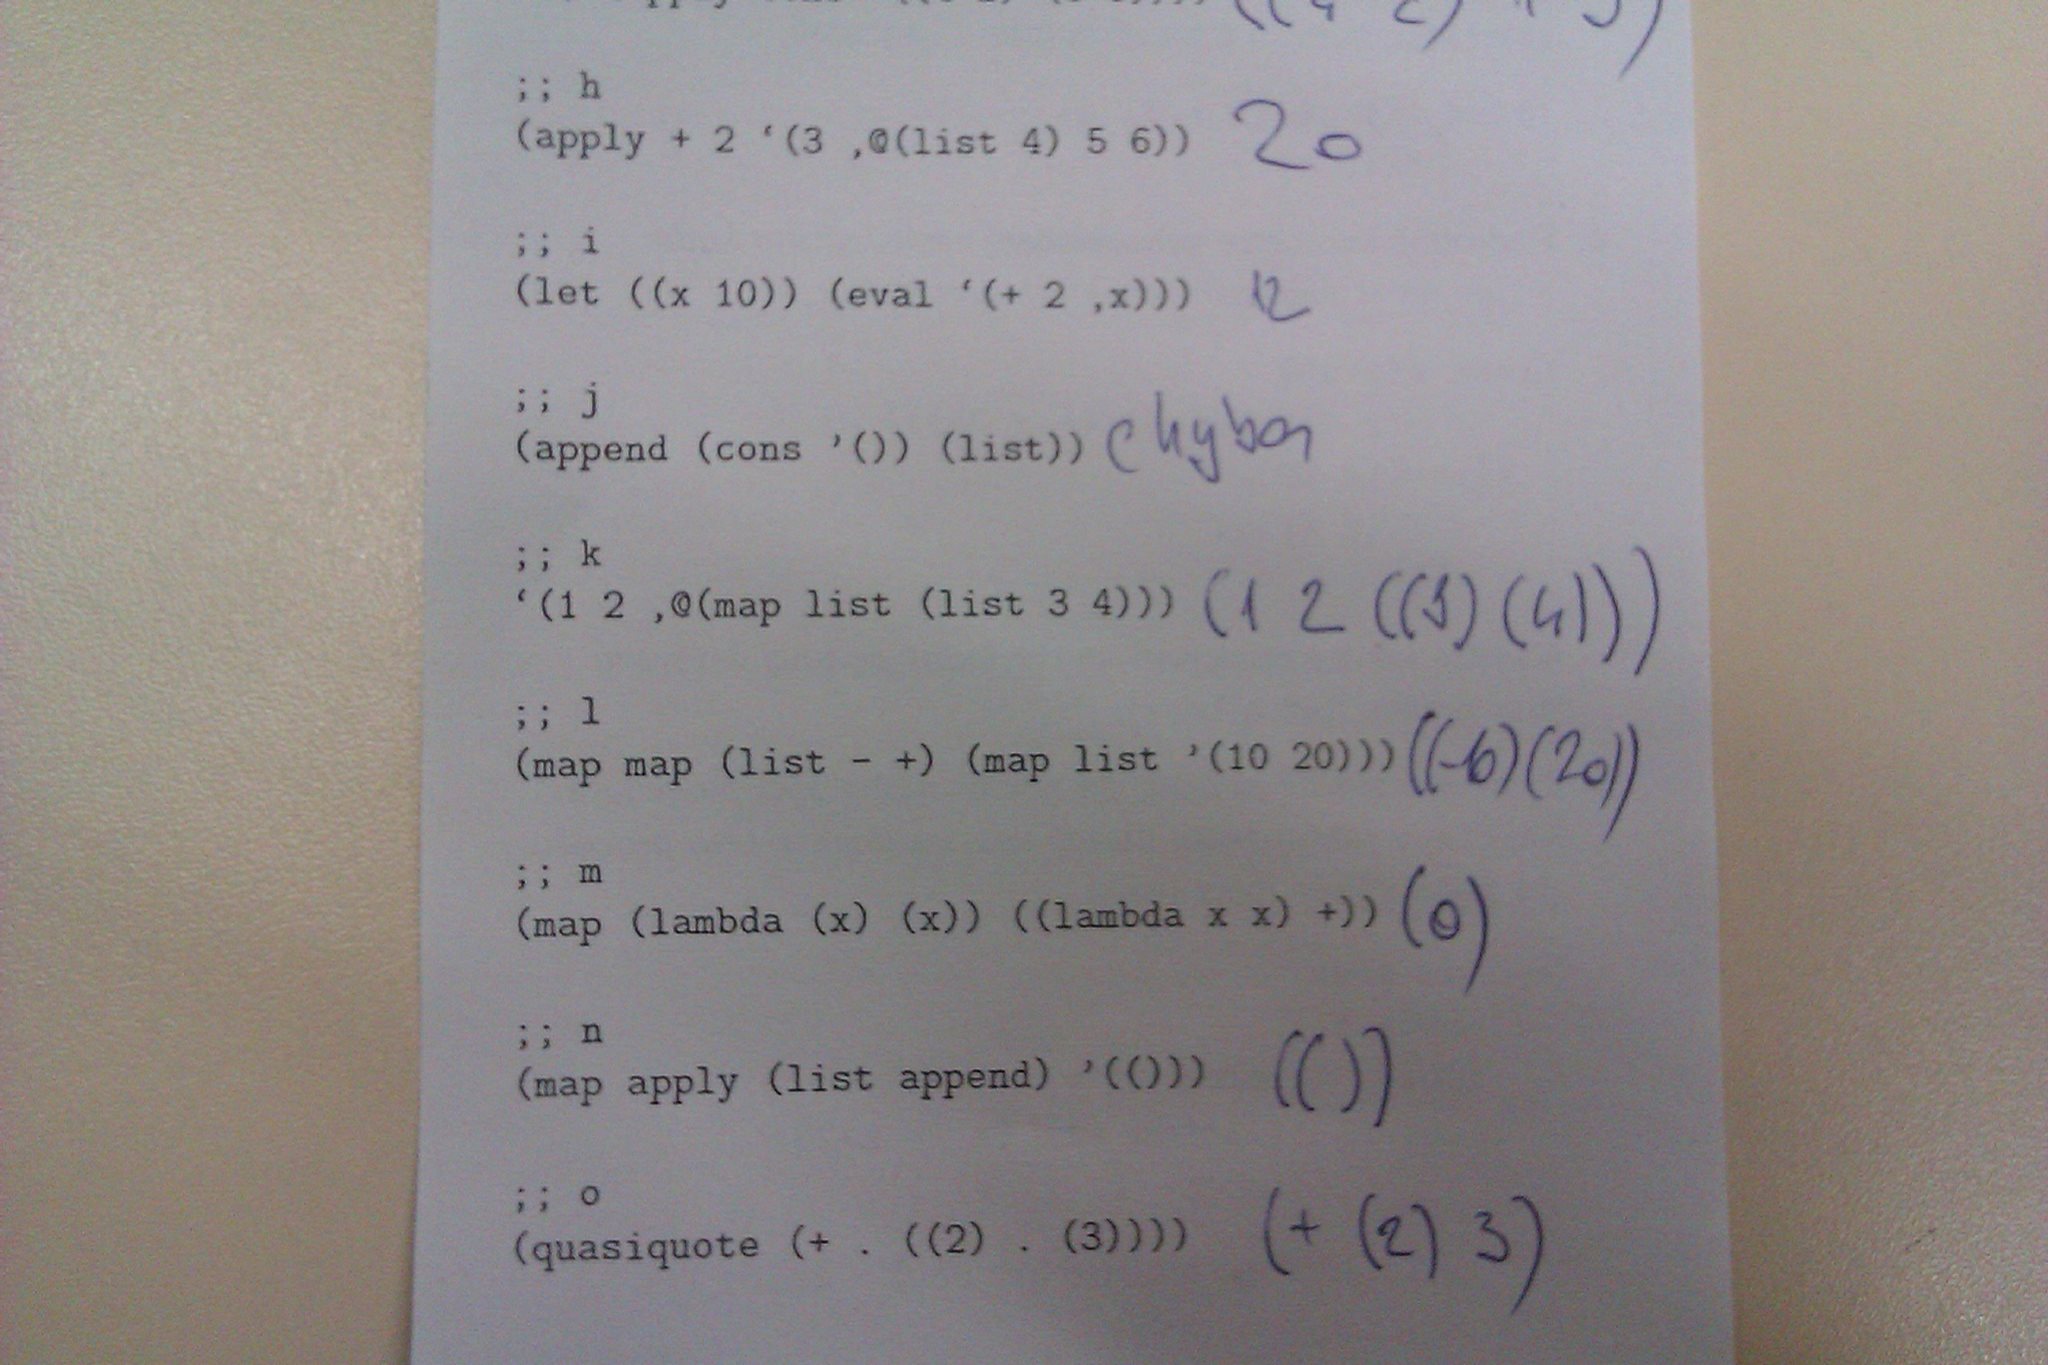 ;; h
(apply + 2 ‘(3 ,@(list 4) 5 6)) 20
;; i
(let ((x 10)) (eval ‘(+ 2 ,x))) 12
;; j
(append (cons ’()) (list)) chyba
;; k
‘(1 2 ,@(map list (list 3 4))) (1 2 ((3) (4)))
;; l
(map map (list - +) (map list ’(10 20))) ((-10) (20))
;; m
(map (lambda (x) (x)) ((lambda x x) +)) (0)
;; n
(map apply (list append) ’(())) (())
;; o
(quasiquote (+ . ((2) . (3)))) (+ (2) 3)